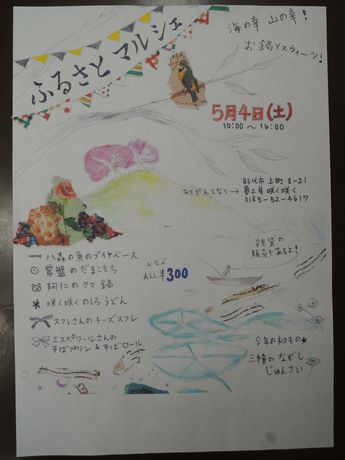 ふるさと マルシェ
海の幸 山の幸!
お鍋とスウィーツ!
5月4日(土)
10:00 ~ 16:00
能代市 上町 8-21
夢工房 咲く咲く
0185-52-4617
八森の魚のブイヤベース
常盤のだまこもち
阿仁のクマ鍋
咲く咲くのしろうどん
スフレさんのチーズスフレ
エスポワールさんの
そばプリン & そばロール
おなべ
ALL ¥300
販売もあるよ!
今年の初もの★
三種の ながし
じゅんさい